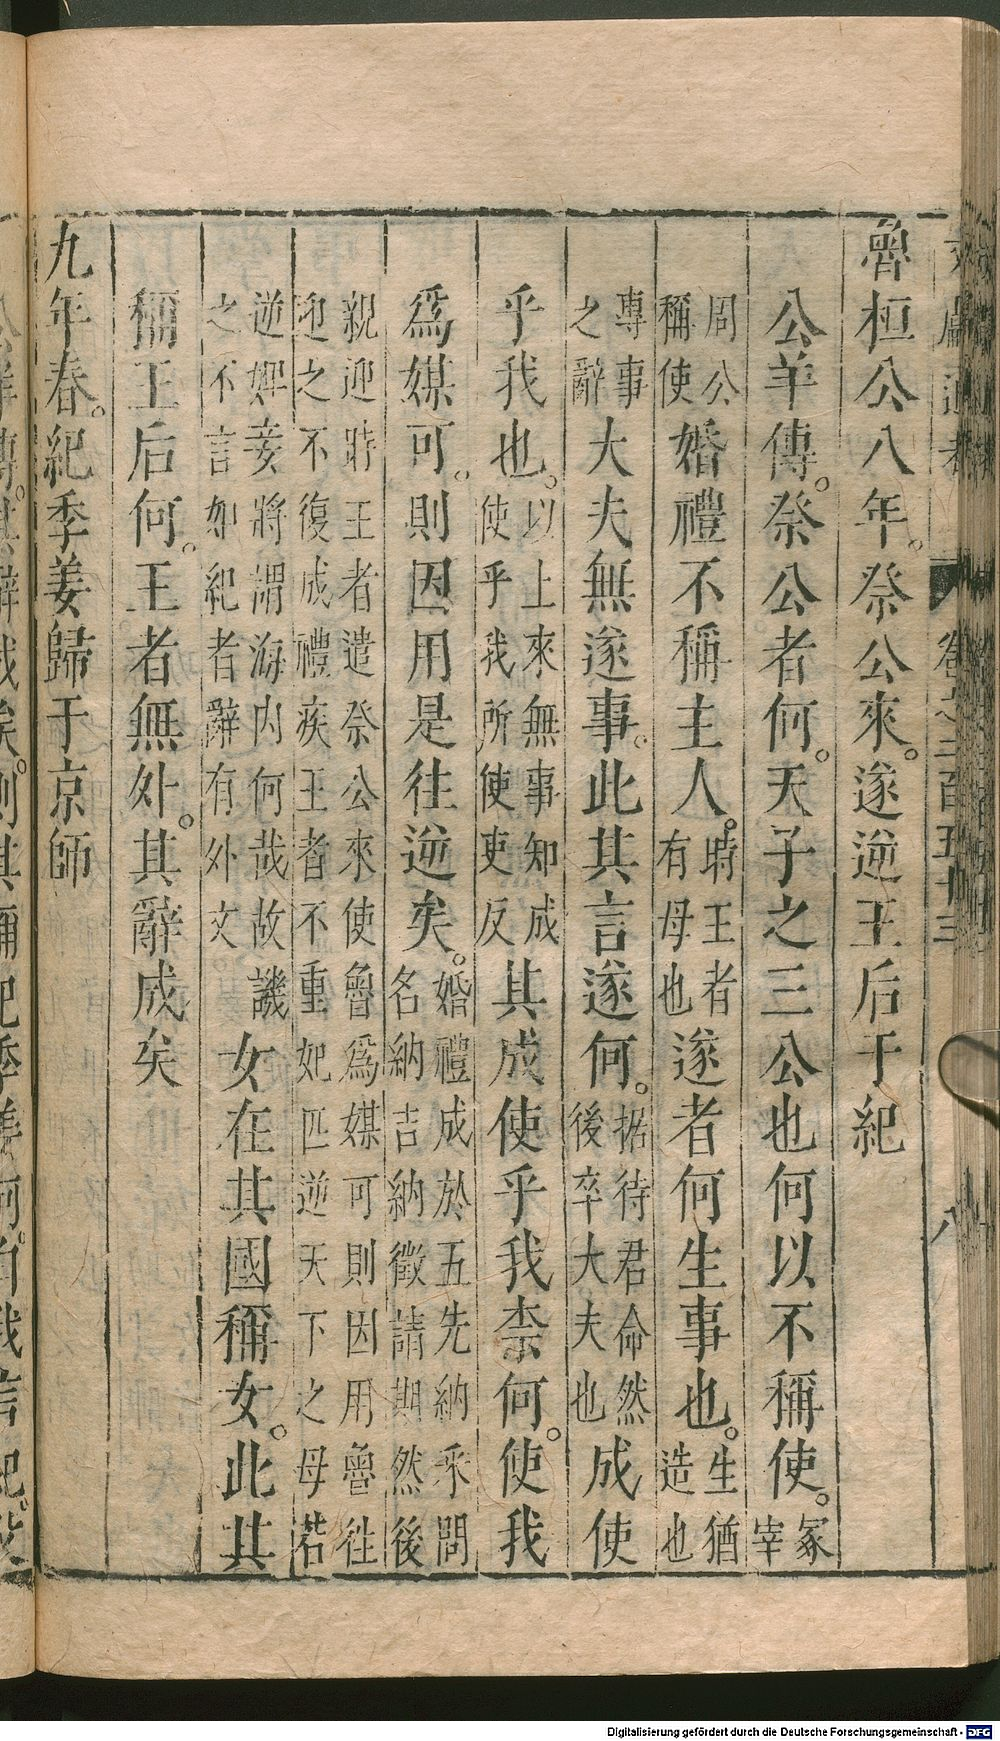 文獻通考 卷之二百五十三 八
魯桓公八年。祭公來。遂逆王后于紀
公羊傳。祭公者何。天子之三公也何以不稱使。冢宰
周公稱使婚禮不稱主人。時王者有母也遂者何生事也。生猶造也
專事之辭大夫無遂事。此其言遂何。据待君命然後卒大夫也成使
乎我也。以上來無事知成使乎我所使吏反其成使乎我柰何。使我
爲媒可。則因用是往逆矣。婚禮成於五先納采問名納吉納徵請期然後
親迎時王者遣祭公來使魯爲媒可則因用魯往迎之不復成禮疾王者不重妃匹逆天下之母若
逆婢妾將謂海内何哉故譏之不言如紀者辭有外文女在其國稱女。此其
稱王后何。王者無外。其辭成矣
九年春。紀季姜歸于京師
公羊傳。其辭成矣。則其稱紀季姜何。自我言紀。
Digitalisierung gefördert durch die Deutsche Forschungsgemeinschaft - DFG